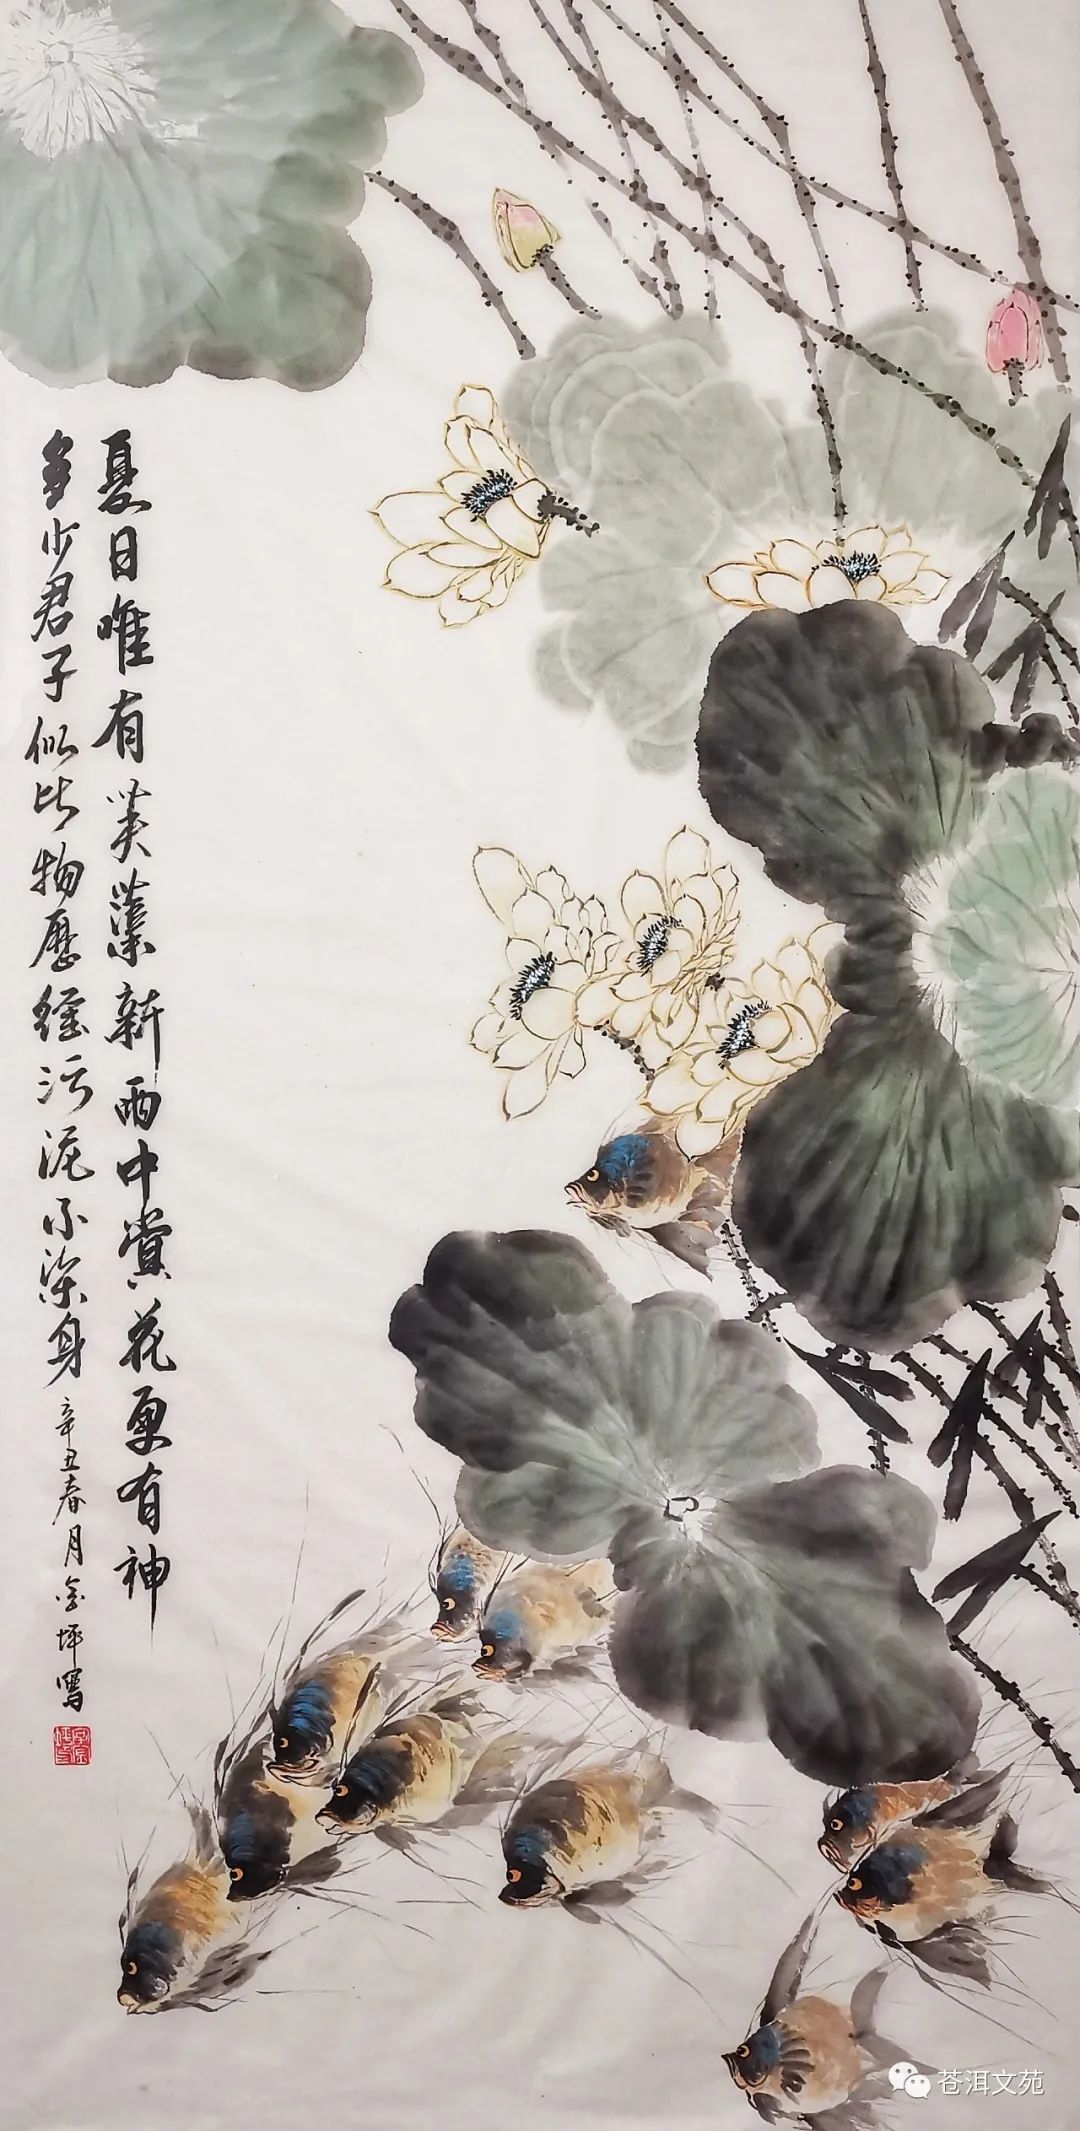 夏日唯有芙蕖新雨中賞花更有神
多少君子似此物歷經污泥不染身
辛丑春月金坪寫
苍洱文苑